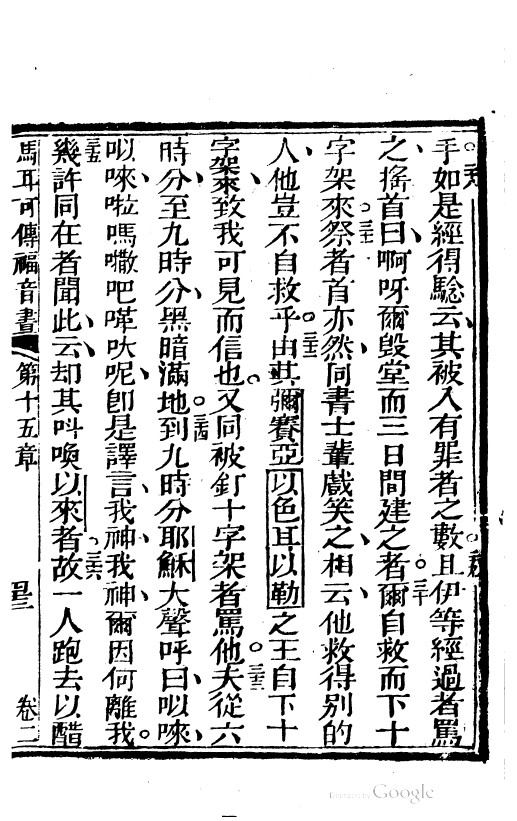 手如是經得騐云其被入有罪者之數且伊等經過者罵
之搖首曰啊呀爾毀堂而三日間建之者爾自救而下十
字架來祭者首亦然同書士輩戲笑之相云他救得別的
人他豈不自救乎由其彌賽亞以色耳以勒之王自下十
字架來致我可見而信也又同被釘十字架者罵他夫從六
時分至九時分黑暗滿地到九時分耶穌大聲呼曰㕥唻
㕥唻啦嗎㘔吧嘩吠呢即是譯言我神我神爾因何離我
幾許同在者聞此云却其呌喚以來者故一人跑去以醋
馬耳可傳福音書 第十五章 卷二
Google